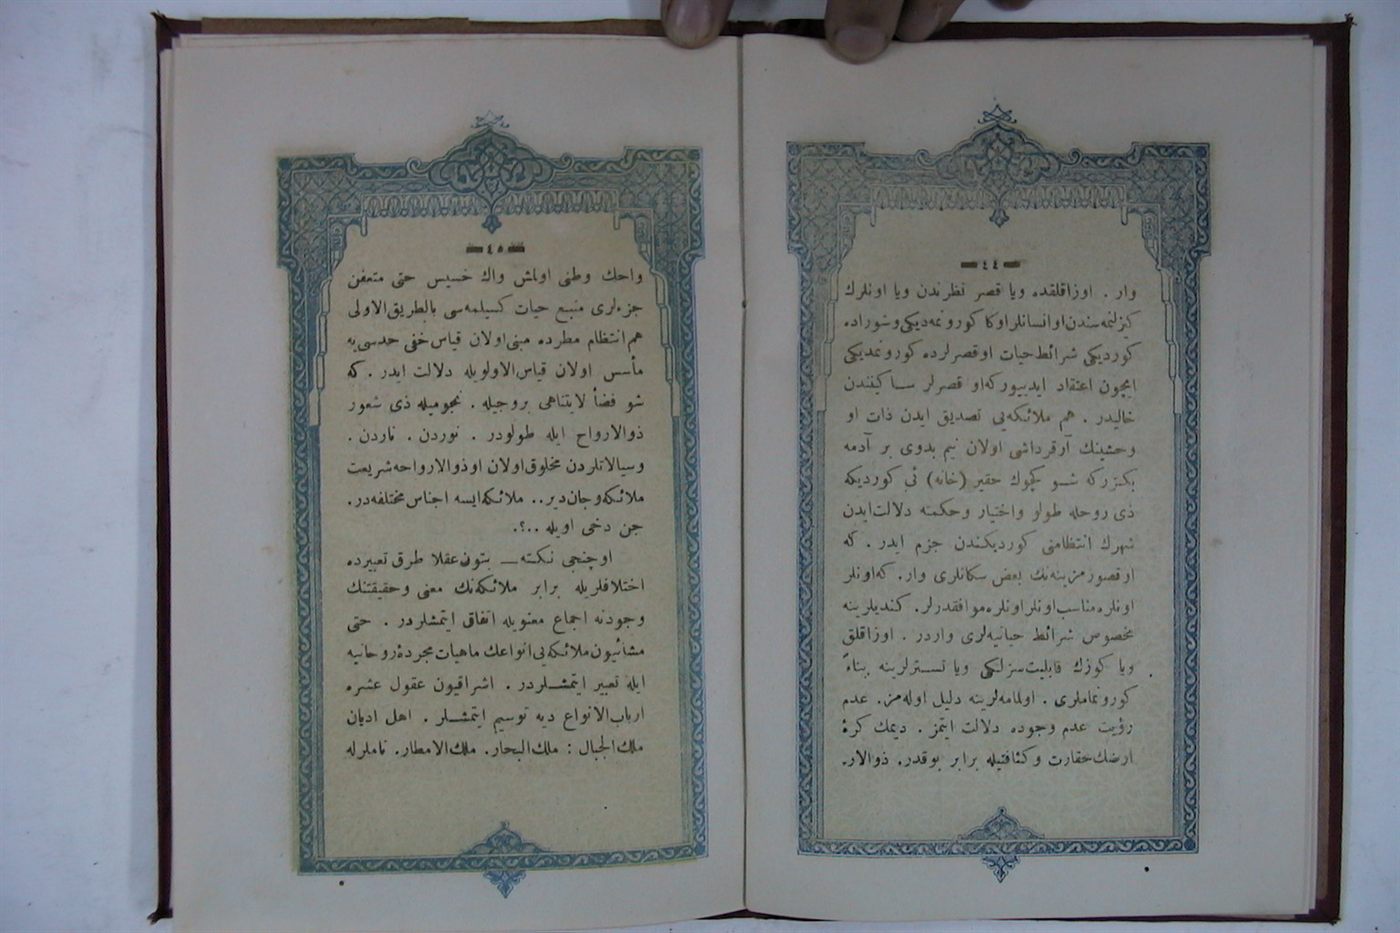 — ٤٤ —
وار . اوزاقلقده ويا قصر نظرندن ويا اونلرك
كيزلنمه‌سندن اوانسانلر اوكا كورونمه‌ديكى وشوراده
كورديكى شرائط حيات اوقصرلرده كورونمديكى
ايچون اعتقاد ايدييوركه او قصرلر ساكينندن
خاليدر . هم ملائكه‌يى تصديق ايدن ذات او
وحشينك آرقرداشى اولان نيم بدوى بر آدمه
بكزركه شو كچوك حقير (خانه) ئى كورديكه
ذى روحله طولو واختيار وحكمته دلالت ايدن
شهرك انتظامنى كورديكندن جزم ايدر . كه
اوقصور مزينه‌نك بعض سكانلرى وار. كه اونلر
اونلره مناسب اونلر اونلره موافقدرلر. كنديلرينه
مخصوص شرائط حياتيه‌لرى واردر . اوزاقلق
ويا كوزك قابليت‌سزلكى ويا تسترلرينه بناءً
كورونماملرى . اولمامه‌لرينه دليل اوله‌مز. عدم
رؤيت عدم وجوده دلالت ايتمز . ديمك كرهٔ
ارضك حقارت وكثافتيله برابر بوقدر. ذوالار.
— ٤٥ —
واحك وطنى اولمش واك خسيس حتى متعفن
جزءلرى منبع حيات كسيلمه‌سى بالطريق الاولى
هم انتظام مطرده مبنى اولان قياس خفى حدسى‌يه
مأسس اولان قياس الاولويله دلالت ايدر . كه
شو فضأ لايتناهى بروجيله . نجوميله ذى شعور
ذوالارواح ايله طولودر . نوردن . ناردن .
وسيالاتلردن مخلوق اولان اوذوالارواحه شريعت
ملائكه وجان دير.. ملائكه ايسه اجناس مختلفه‌در.
جن دخى اويله ..؟.
اوچنجى نكته— بتون عقلا طرق تعبيرده
اختلافلريله برابر ملائكه‌نك معنى وحقيقتنك
وجودنه اجماع معنويله اتفاق ايتمشلردر . حتى
مشائيون ملائكه‌يى انواعك ماهيات مجردهٔ روحانيه
ايله تعبير ايتمشلردر . اشراقيون عقول عشره
ارباب الانواع ديه توسيم ايتمشلر . اهل اديان
ملك الجبال : ملك البحار. ملك الامطار. ناملرله